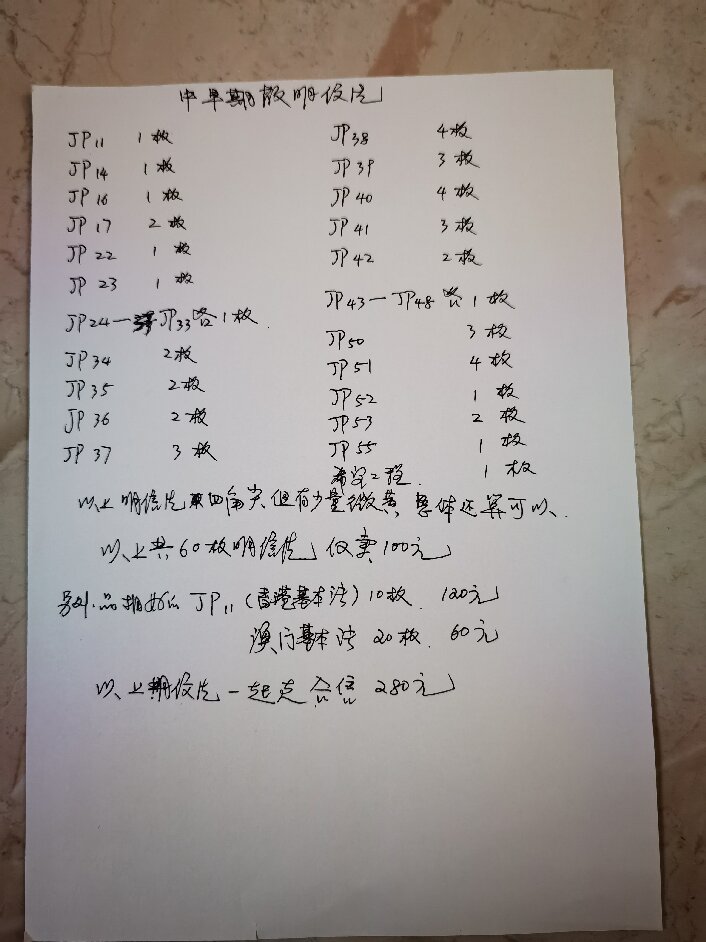 中早期散明信片
JP11 1枚
JP14 1枚
JP16 1枚
JP17 2枚
JP22 1枚
JP23 1枚
JP24—JP33各1枚.
JP34 2枚
JP35 2枚
JP36 2枚
JP37 3枚
JP38 4枚
JP39 3枚
JP40 4枚
JP41 3枚
JP42 2枚
JP43—JP48各1枚
JP50 3枚
JP51 4枚
JP52 1枚
JP53 2枚
JP55 1枚
希望工程. 1枚
以上明信片四角尖,但有少量微黄,总体还算可以.
以上共60枚明信片 仅卖100元
另外.品相好的JP11(香港基本法)10枚. 120元
澳门基本法 20枚. 60元
以上明信片一起走 合售280元